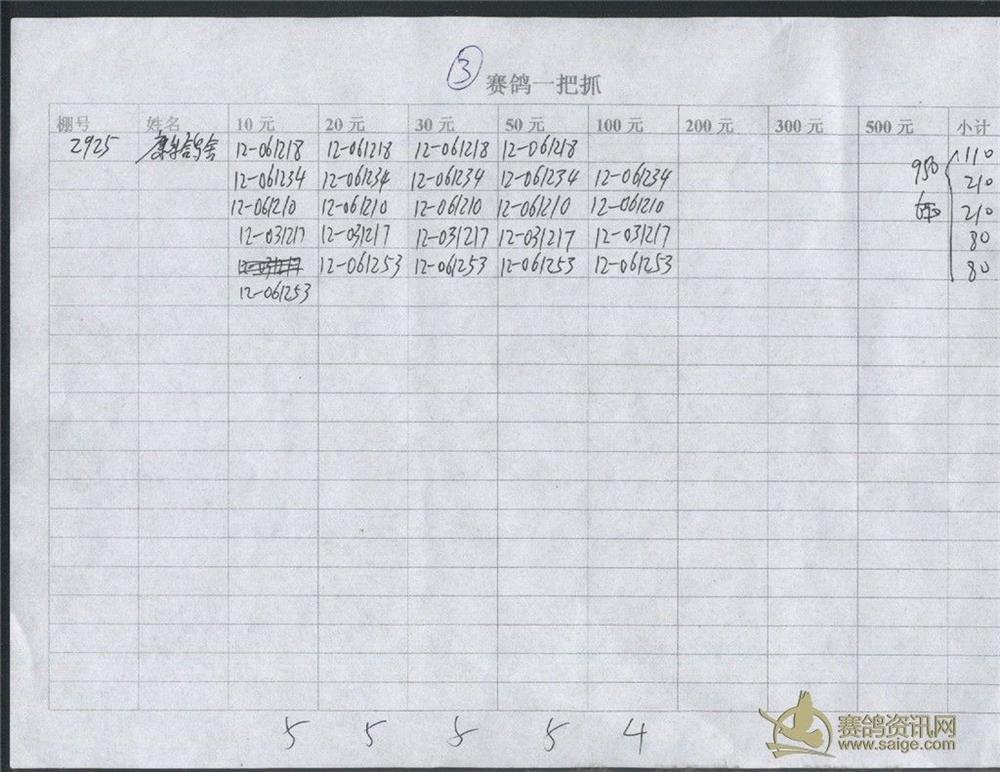 ③ 赛鸽一把抓
棚号 姓名 10 元 20 元 30 元 50 元 100 元 200 元 300 元 500 元 小计
2925 12-061218 12-061218 12-061218 12-061218 110
12-061234 12-061234 12-061234 12-061234 12-061234 950 210
12-061210 12-061210 12-061210 12-061210 12-061210 210
12-031217 12-031217 12-031217 12-031217 12-031217 80
12-061253 12-061253 12-061253 12-061253 80
12-061253
5 5 5 5 4
赛鸽资讯网
www.saige.com